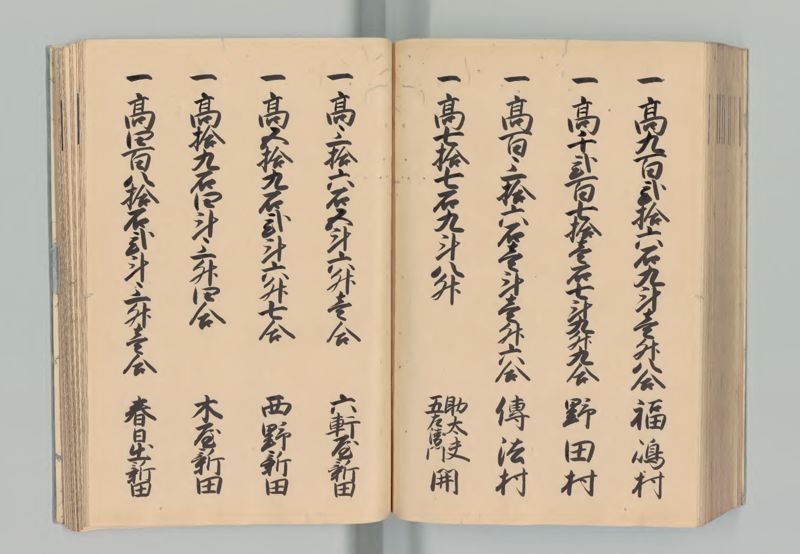 一 高九百弐拾六石九斗壱升八合 福嶋村
一 高千弐百七拾壱石七斗九升九合 野田村
一 高百三拾六石壱斗壱升六合 傳法村
一 高七拾七石九斗八升 助太夫 五左衛門 開
一 高三拾六石五斗六升壱合 六軒屋新田
一 高五拾九石弐斗六升七合 西野新田
一 高拾九石四斗三升四合 木屋新田
一 高四百八拾石弐斗三升壱合 春日出新田